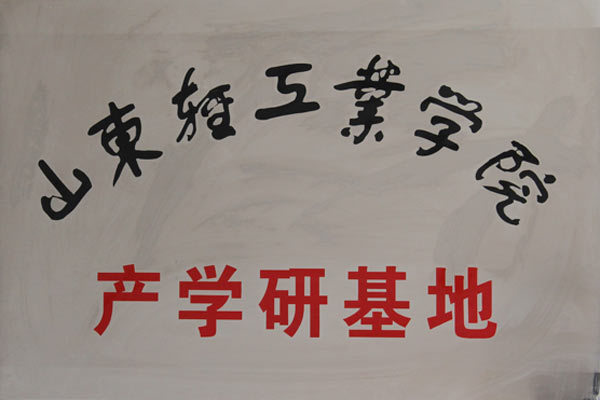 山東輕工業学院
产学研基地